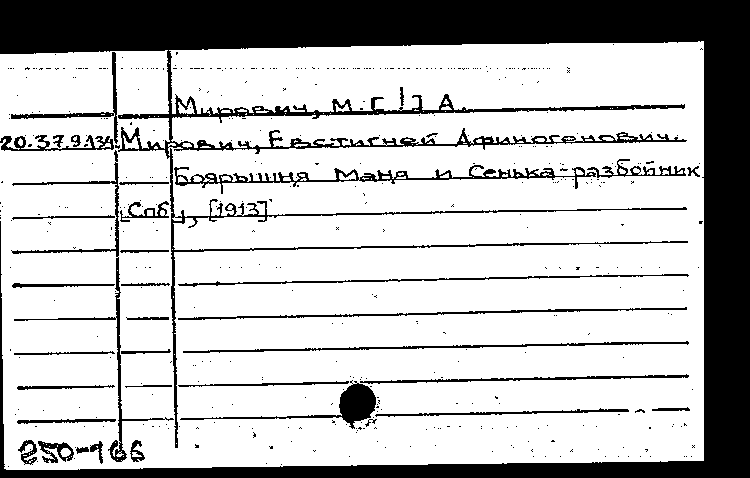 Мирович, М. [!] А.
20.37.9.134 Мирович, Евстигней Афиногенович.
Боярышня Маня и Сенька-разбойник
[Спб], [1913]
250-166